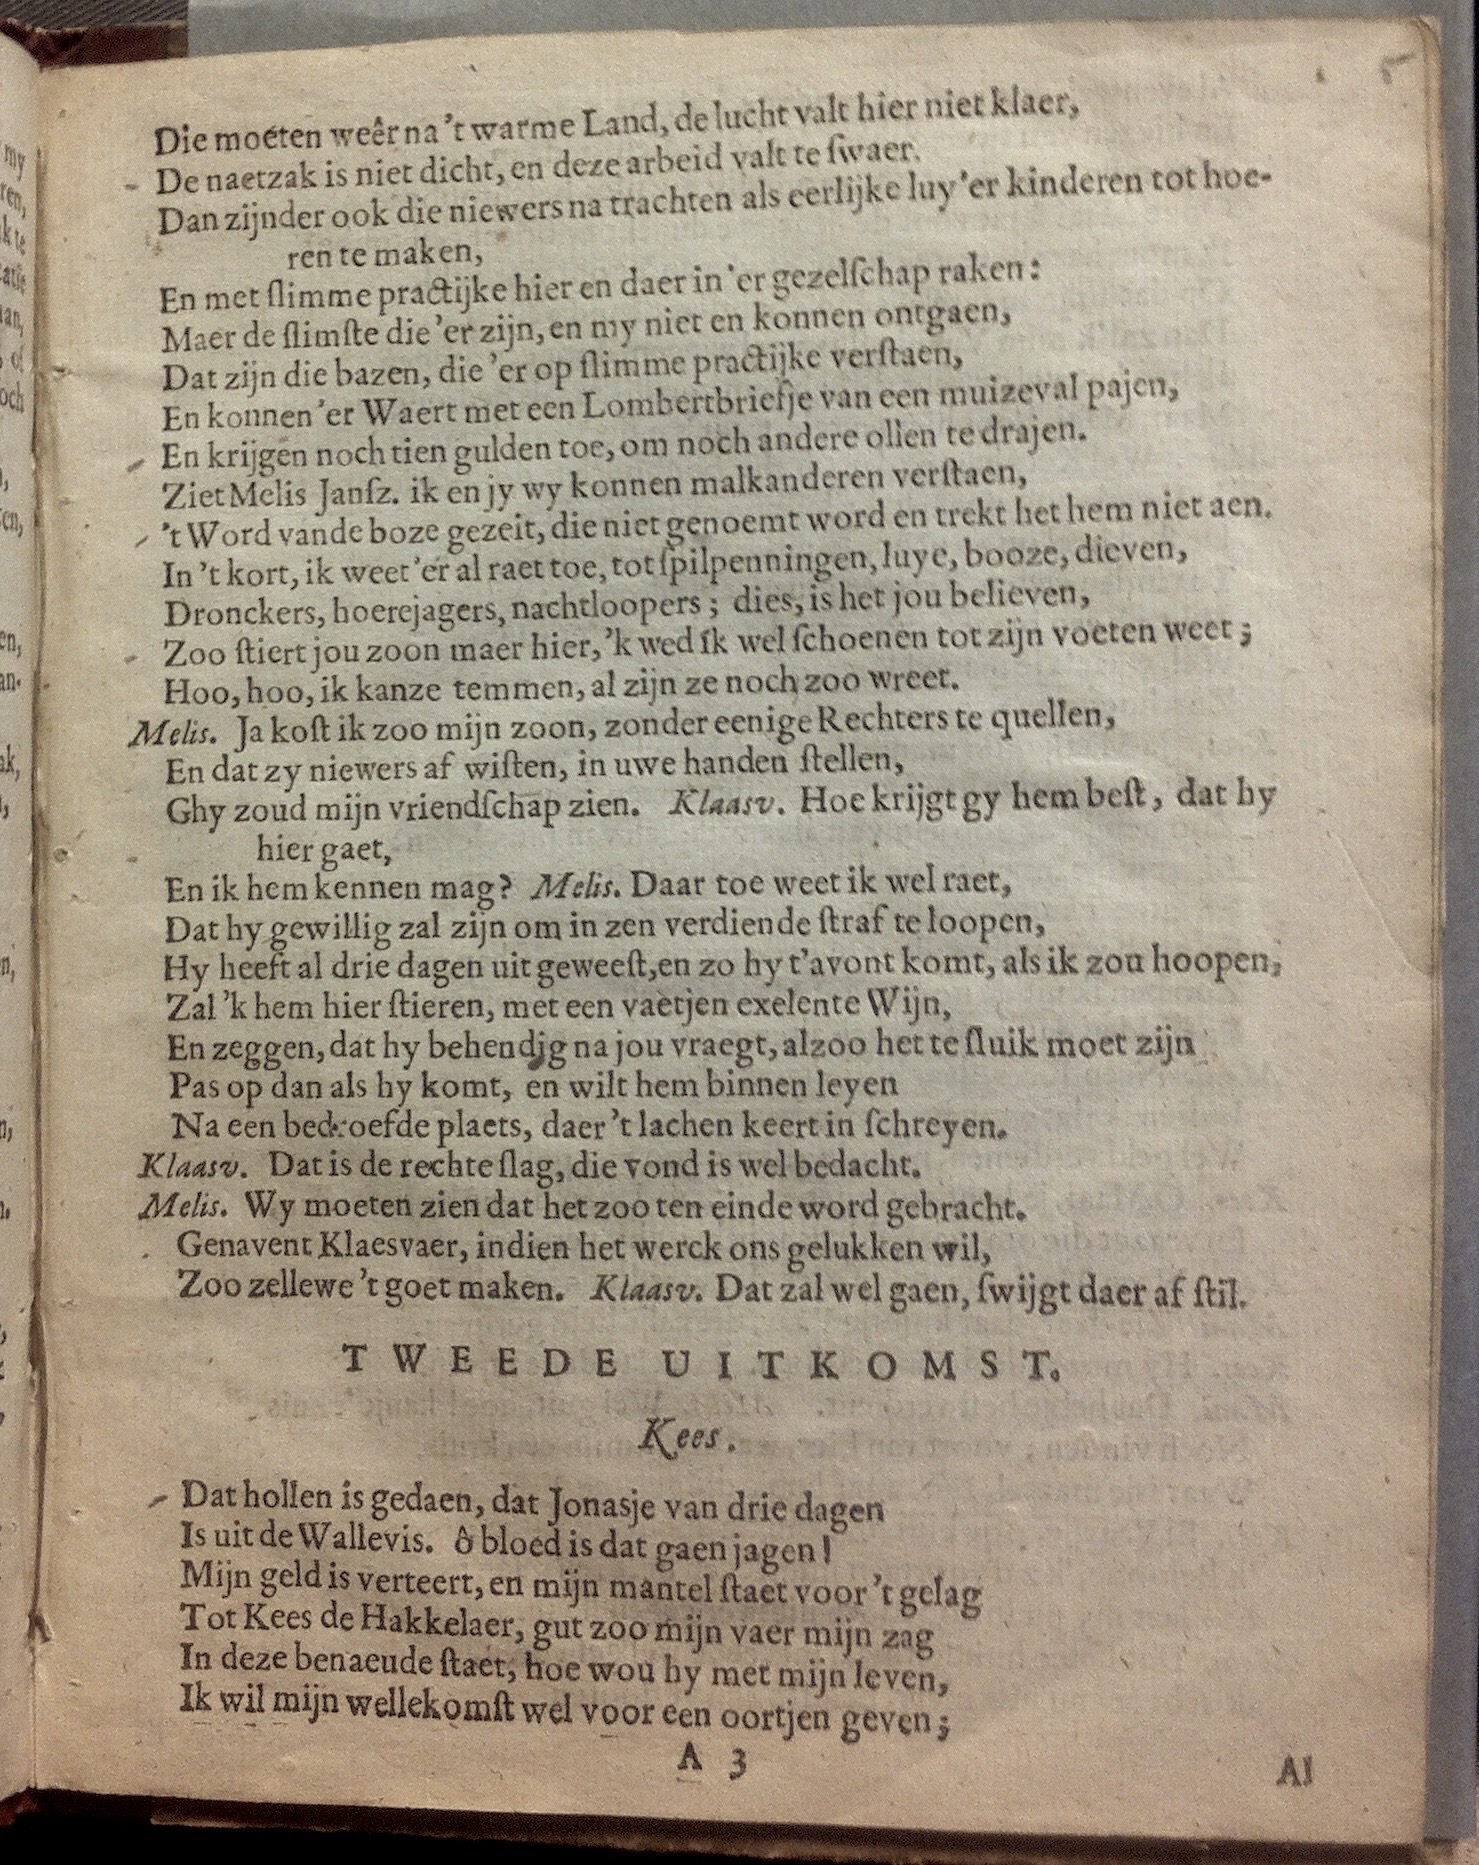 5
Die moeten weêr na 't warme Land, de lucht valt hier niet klaer,
De naetzak is niet dicht, en deze arbeid valt te ſwaer.
Dan zijnder ook die niewers na trachten als eerlijke luy 'er kinderen tot hoe-
ren te maken,
En met ſlimme practijke hier en daer in 'er gezelſchap raken:
Maer de ſlimſte die 'er zijn, en my niet en konnen ontgaen,
Dat zijn die bazen, die 'er op ſlimme practijke verſtaen,
En konnen 'er Waert met een Lombertbriefje van een muizeval pajen,
En krijgen noch tien gulden toe, om noch andere ollen te drajen.
Ziet Melis Janſz. ik en jy wy konnen malkanderen verſtaen,
't Word vande boze gezeit, die niet genoemt word en trekt het hem niet aen.
In 't kort, ik weet 'er al raet toe, tot ſpilpenningen, luye, booze, dieven,
Dronckers, hoerejagers, nachtloopers; dies, is het jou believen,
Zoo ſtiert jou zoon maer hier, 'k wed ik wel ſchoenen tot zijn voeten weet;
Hoo, hoo, ik kanze temmen, al zijn ze noch zoo wreet.
Melis. Ja koſt ik zoo mijn zoon, zonder eenige Rechters te quellen,
En dat zy niewers af wiſten, in uwe handen ſtellen,
Ghy zoud mijn vriendſchap zien. Klaasv. Hoe krijgt gy hem beſt, dat hy
hier gaet,
En ik hem kennen mag? Melis. Daar toe weet ik wel raet,
Dat hy gewillig zal zijn om in zen verdiende ſtraf te loopen,
Hy heeft al drie dagen uit geweeſt, en zo hy t'avont komt, als ik zou hoopen,
Zal 'k hem hier ſtieren, met een vaetjen exelente Wijn,
En zeggen, dat hy behendig na jou vraegt, alzoo het te ſluik moet zijn
Pas op dan als hy komt, en wilt hem binnen leyen
Na een bedroefde plaets, daer 't lachen keert in ſchreyen.
Klaasv. Dat is de rechte ſlag, die vond is wel bedacht.
Melis. Wy moeten zien dat het zoo ten einde word gebracht.
Genavent Klaesvaer, indien het werck ons gelukken wil,
Zoo zellewe 't goet maken. Klaasv. Dat zal wel gaen, ſwijgt daer af ſtil.
TWEEDE UITKOMST.
Kees.
Dat hollen is gedaen, dat Jonasje van drie dagen
Is uit de Wallevis. ô bloed is dat gaen jagen!
Mijn geld is verteert, en mijn mantel ſtaet voor 't gelag
Tot Kees de Hakkelaer, gut zoo mijn vaer mijn zag
In deze benaeude ſtaet, hoe wou hy met mijn leven,
Ik wil mijn wellekomſt wel voor een oortjen geven;
A 3
Al